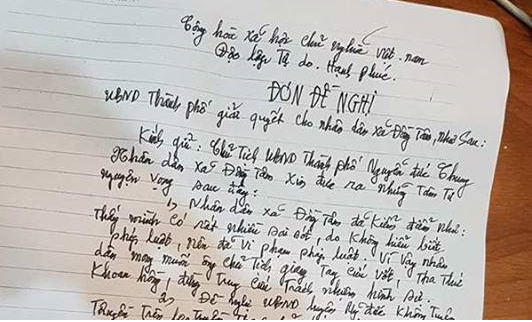 Cộng hòa xã hội chủ nghĩa Việt-nam
Độc lập Tự do. Hạnh phúc.
ĐƠN ĐỀ NGHỊ
UBND Thành phố giải quyết cho nhân dân xã Đồng Tâm, như sau:
Kính gửi: Chủ Tịch UBND Thành phố Nguyễn Đức Chung
Nhân dân xã Đồng Tâm xin đưa ra những Tâm Tư
nguyện vọng sau đây:
1) Nhân dân xã Đồng Tâm đã kiểm điểm như:
Thấy mình có rất nhiều sai sót, do không hiểu biết
pháp luật, nên để vi phạm pháp luật. Vì vậy nhân
dân mong muốn ông Chủ Tịch, giang tay cứu vớt, Tha Thứ
Khoan hồng, đừng truy cứu Trách nhiệm hình sự.
2) Đề nghị UBND huyện Mỹ Đức không